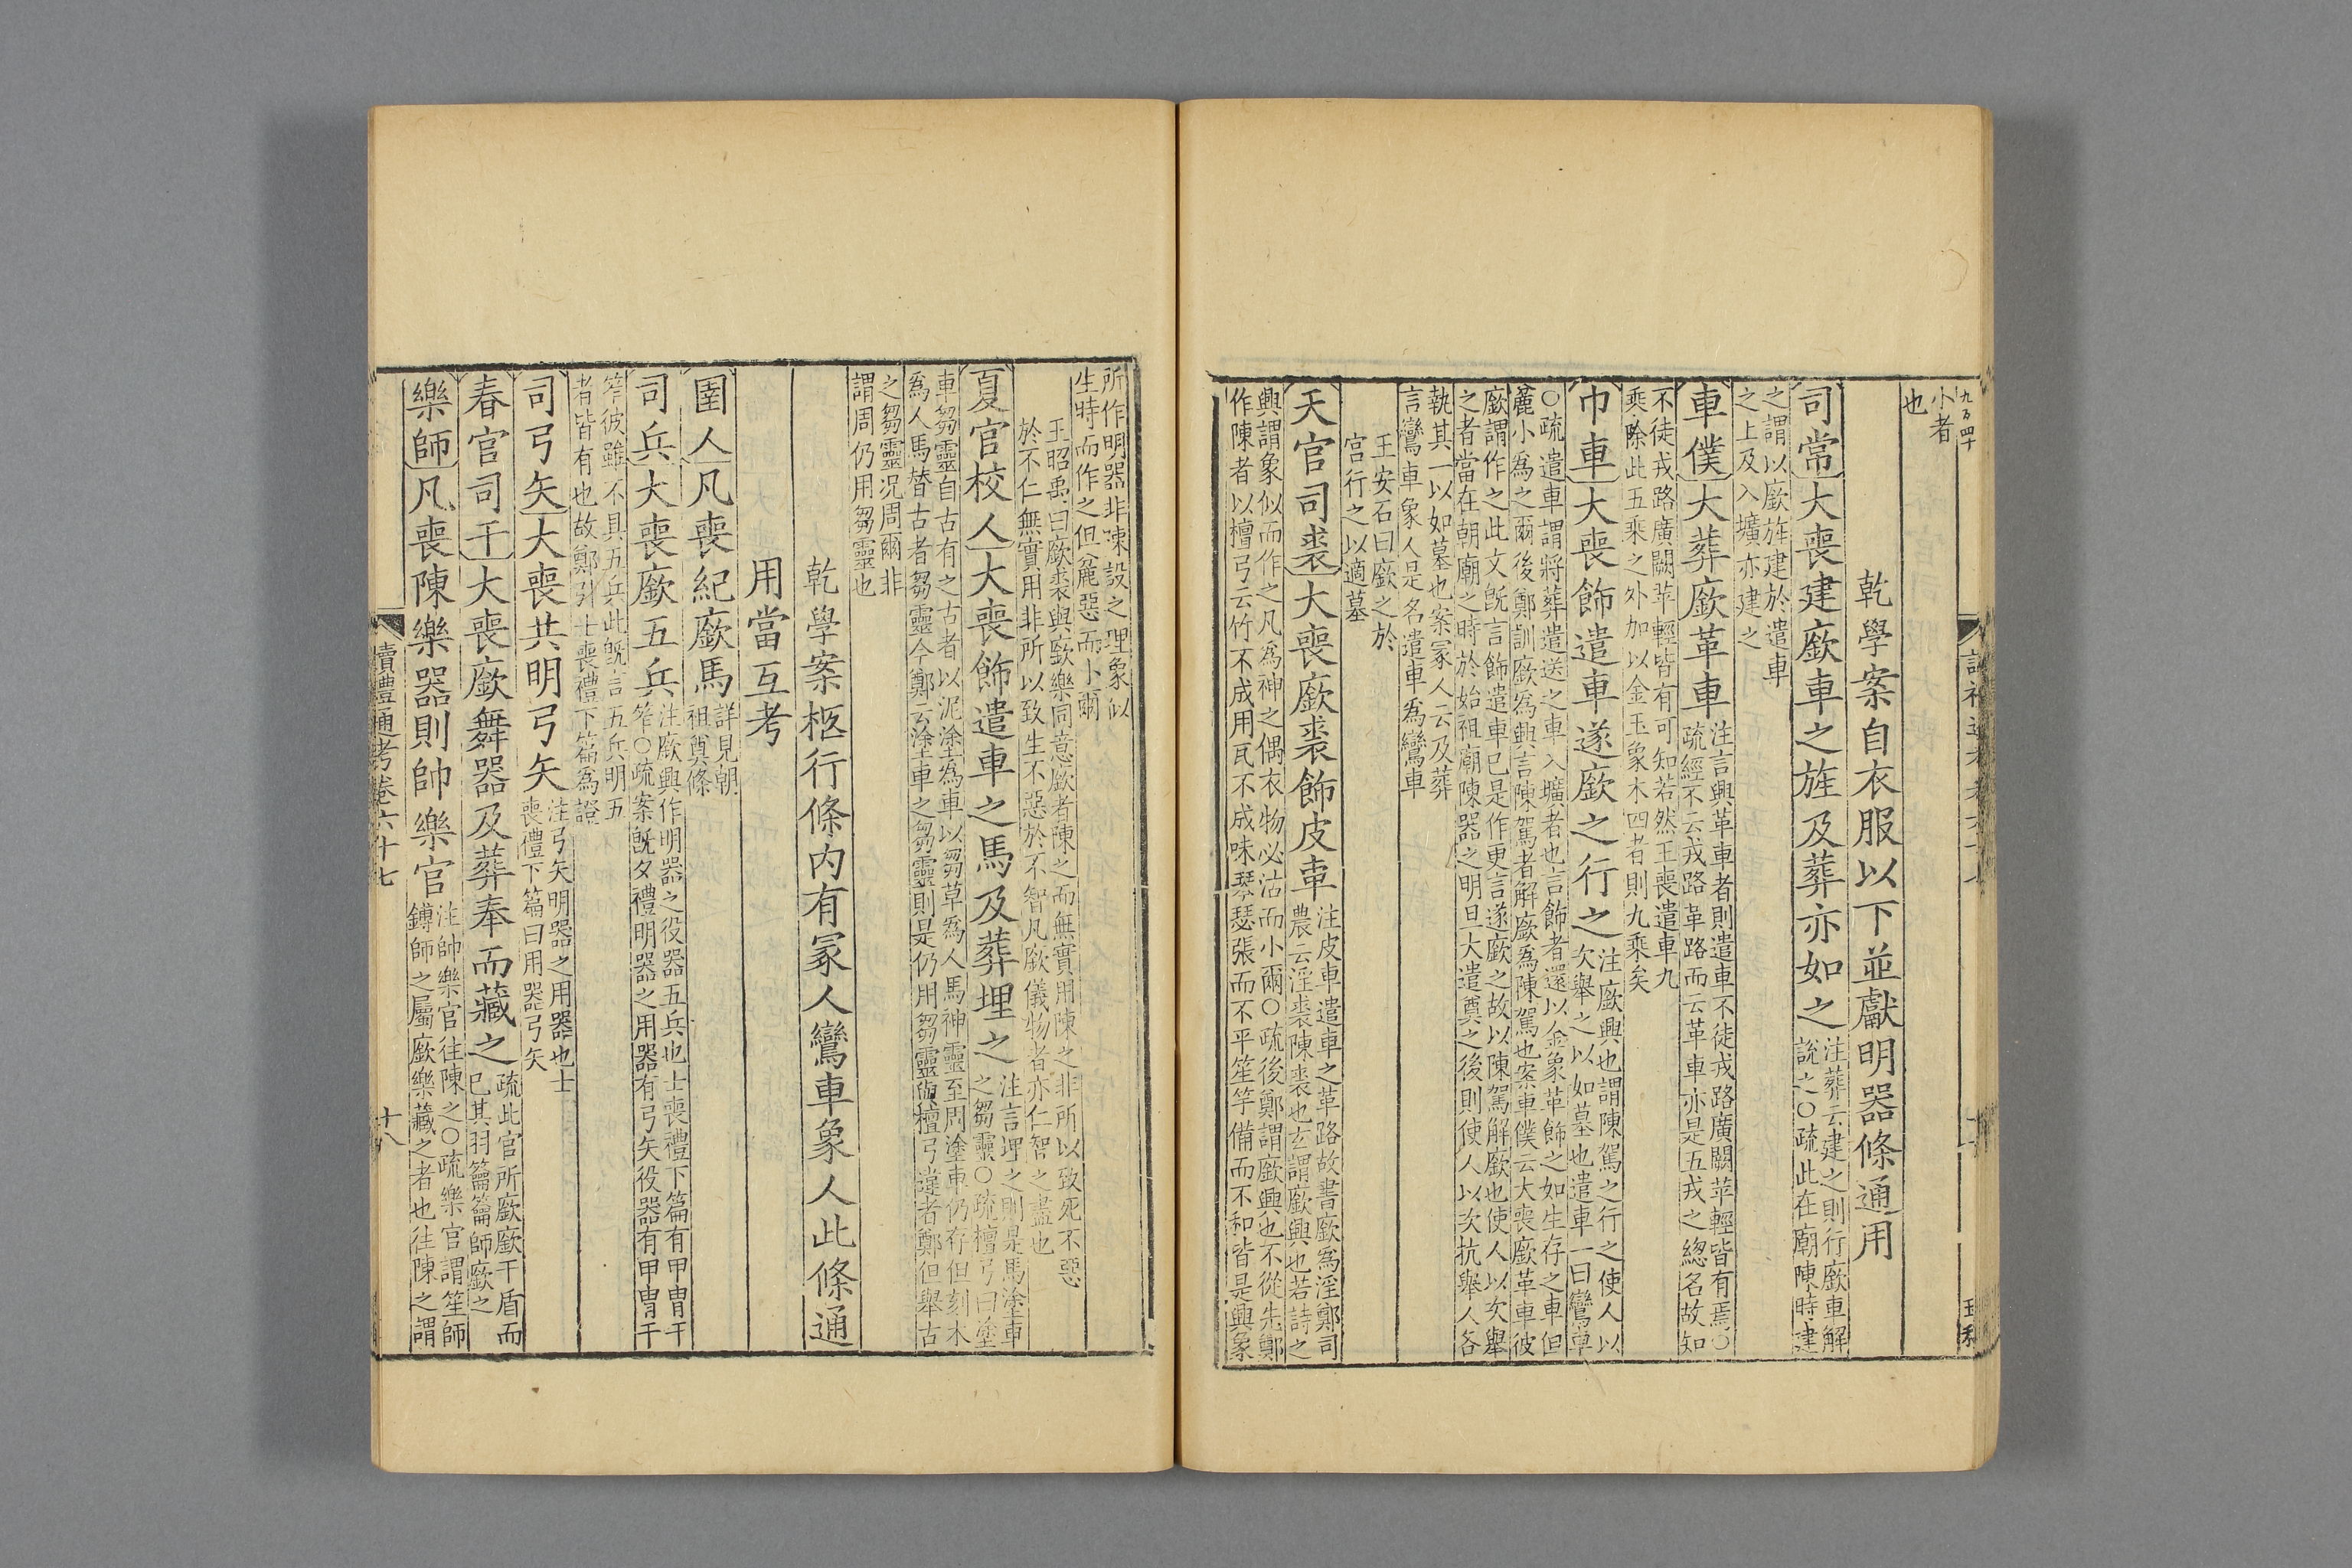 小者
也
乾學案自衣服以下並獻明器條通用
司常大喪建廞車之旌及葬亦如之注葬云建之則行廞車解
說之○疏此在廟陳時建
之謂以廞旌建於遣車
之上及入壙亦建之
車僕大葬廞革車注言興革車者則遣車不徒戎路廣闕苹輕皆有焉○
疏經不云戎路革路而云革車亦是五戎之緫名故知
不徒戎路廣闕苹輕皆有可知若然王喪遣車九
乘除此五乘之外加以金玉象木四者則九乘矣
巾車大喪飾遣車遂廞之行之注廞興也謂陳駕之行之使人以
次舉之以如墓也遣車一曰鸞車
○疏遣車謂將葬遣送之車入壙者也言飾者還以金象革飾之如生存之車但
麄小為之爾後鄭訓廞為興言陳駕者解廞為陳駕也案車僕云大喪廞革車彼
廞謂作之此文旣言飾遣車已是作更言遂廞之故以陳駕解廞也使人以次舉
之者當在朝廟之時於始祖廟陳器之明旦大遣奠之後則使人以次抗舉人各
執其一以如墓也案冢人云及葬
言鸞車象人是名遣車為鸞車
王安石曰廞之於
宫行之以適墓
天官司裘大喪廞裘飾皮車注皮車遣車之革路故書廞為淫鄭司
農云淫裘陳裘也玄謂廞興也若詩之
興謂象似而作之凡為神之偶衣物必沽而小爾○疏後鄭謂廞興也不從先鄭
作陳者以檀弓云竹不成用瓦不成味琴瑟張而不平笙竽備而不和皆是興象
所作明器非陳設之理象似
生時而作之但麄惡而卜爾
王昭禹曰廞裘與廞樂同意廞者陳之而無實用陳之非所以致死不惡
於不仁無實用非所以致生不惡於不智凡廞儀物者亦仁智之盡也
夏官校人大喪飾遣車之馬及葬埋之注言埋之則是馬塗車
之芻靈○疏檀弓曰塗
車芻靈自古有之古者以泥涂為車以芻草為人馬神靈至周塗車仍存但刻木
為人馬替古者芻靈今鄭云涂車之芻靈則是仍用芻靈與檀弓違者鄭但舉古
之芻靈况周爾非
謂周仍用芻靈也
乾學案柩行條内有冢人鸞車象人此條通
用當互考
圉人凡喪紀廞馬詳見朝
祖奠條
司兵大喪廞五兵注廞興作明器之役器五兵也士喪禮下篇有甲冑干
笮○疏案旣夕禮明器之用器有弓矢役器有甲冑干
笮彼雖不具五兵此旣言五兵明五
者皆有也故鄭引士喪禮下篇為證
司弓矢大喪共明弓矢注弓矢明器之用器也士
喪禮下篇曰用器弓矢
春官司干大喪廞舞器及葬奉而藏之疏此官所廞廞干盾而
已其羽籥籥師廞之
樂師凡喪陳樂器則帥樂官注帥樂官往陳之○疏樂官謂笙師
鎛師之屬廞樂藏之者也往陳之謂
讀禮通考卷六十七
十八